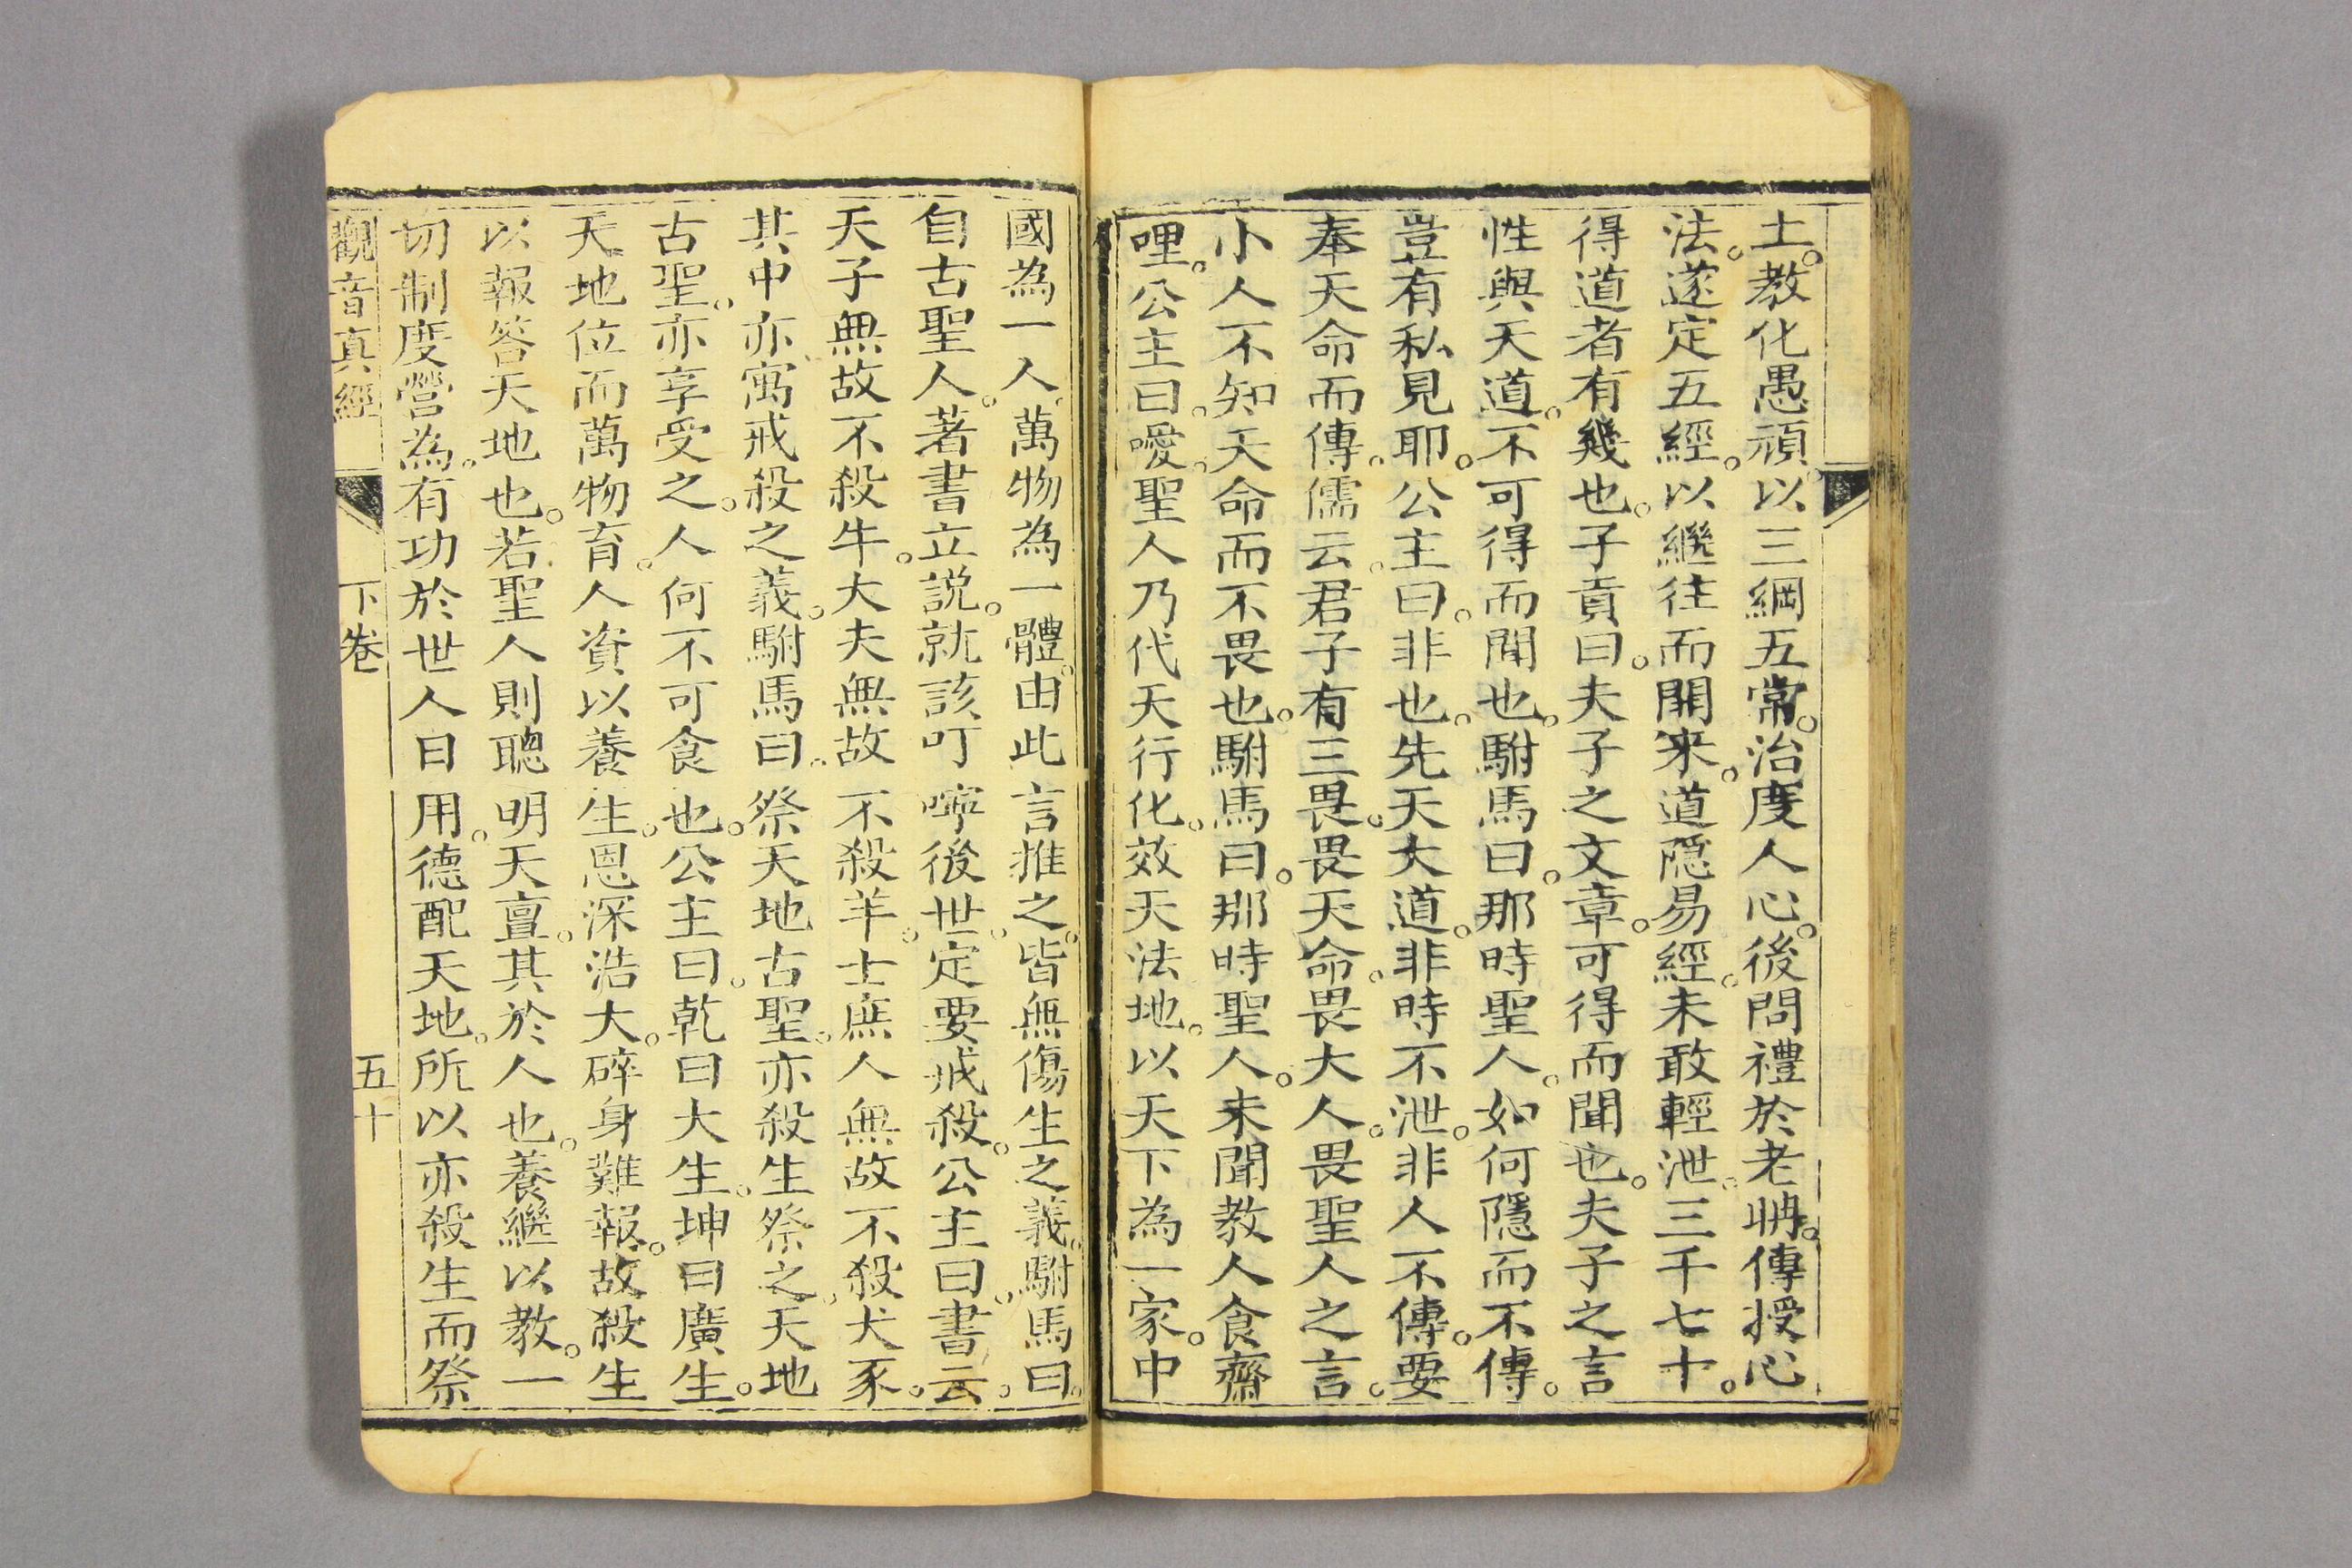 土。教化愚頑。以三綱五常。治度人心。後問禮於老聃。傳授心
法。遂定五經。以繼往而開来。道隱易經。未敢輕泄。三千七十。
得道者有幾也。子貢曰。夫子之文章。可得而聞也。夫子之言
性與天道。不可得而聞也。駙馬曰。那時聖人。如何隱而不傳。
豈有私見耶。公主曰。非也。先天大道。非時不泄。非人不傳。要
奉天命而傳。儒云。君子有三畏。畏天命。畏大人。畏聖人之言。
小人不知天命而不畏也。駙馬曰。那時聖人。未聞教人食齋
哩。公主曰。噯。聖人乃代天行化。效天法地。以天下為一家。中
國為一人。萬物為一體。由此言推之。皆無傷生之義。駙馬曰。
自古聖人。著書立説。就該叮嚀後世。定要戒殺。公主曰。書云。
天子無故不殺牛。大夫無故不殺羊。士庶人無故不殺犬豕。
其中亦寓戒殺之義。駙馬曰。祭天地古聖。亦殺生祭之。天地
古聖。亦享受之。人何不可食也。公主曰。乾曰大生。坤曰廣生。
天地位而萬物育。人資以養生。恩深浩大。碎身難報。故殺生
以報答天地也。若聖人則聰明天亶。其於人也。養繼以教。一
切制度營為。有功於世人日用。德配天地。所以亦殺生而祭
觀音真經 下卷 五十